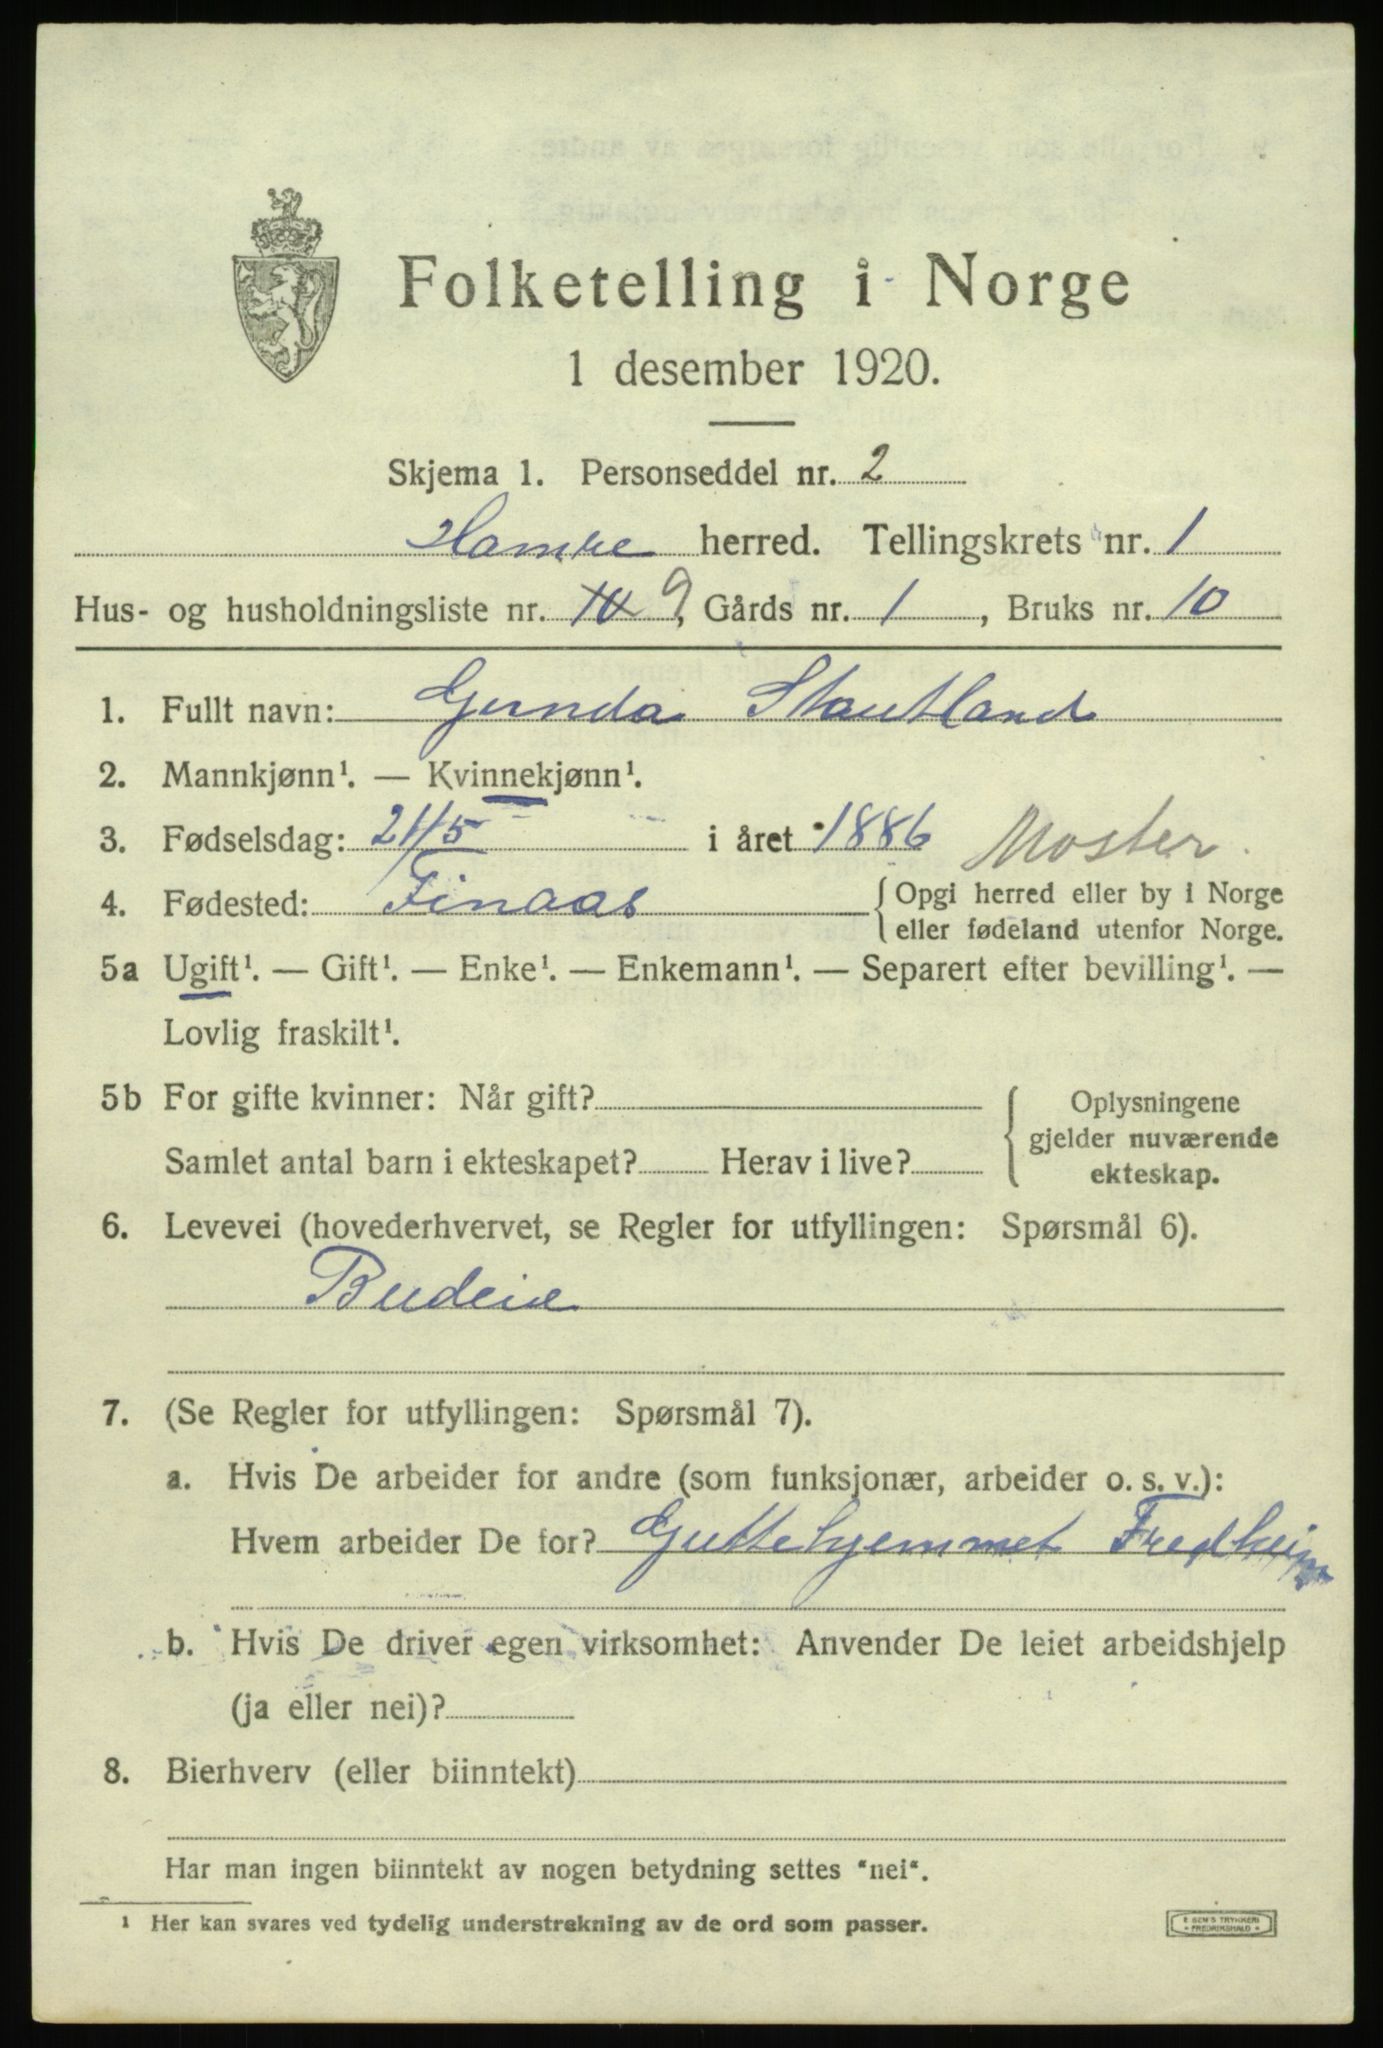 Folketelling i Norge
1 desember 1920.
Skjema 1. Personseddel nr. 2
Hamre herred. Tellingskrets nr. 1
Hus- og husholdningsliste nr. 10 9, Gårds nr. 1, Bruks nr. 10
1. Fullt navn: Gunda Stautland
2. Mannkjønn¹. — Kvinnekjønn¹.
3. Fødselsdag: 21/5 i året 1886 Moster.
4. Fødested: Finaas {Opgi herred eller by i Norge
eller fødeland utenfor Norge.
5a Ugift¹. — Gift¹. — Enke¹. — Enkemann¹. — Separert efter bevilling¹. —
Lovlig fraskilt¹.
5b For gifte kvinner: Når gift? { Oplysningene
gjelder nuværende
Samlet antal barn i ekteskapet? Herav i live? ekteskap.
6. Levevei (hovederhvervet, se Regler for utfyllingen: Spørsmål 6).
Budeie
7. (Se Regler for utfyllingen: Spørsmål 7).
a. Hvis De arbeider for andre (som funksjonær, arbeider o. s. v.):
Hvem arbeider De for? Guttehjemmet Fredheim
b. Hvis De driver egen virksomhet: Anvender De leiet arbeidshjelp
(ja eller nei)?
8. Bierhverv (eller biinntekt)
Har man ingen biinntekt av nogen betydning settes "nei".
¹ Her kan svares ved tydelig understrekning av de ord som passer.
TRYKKERI
FREDRIKSHALD